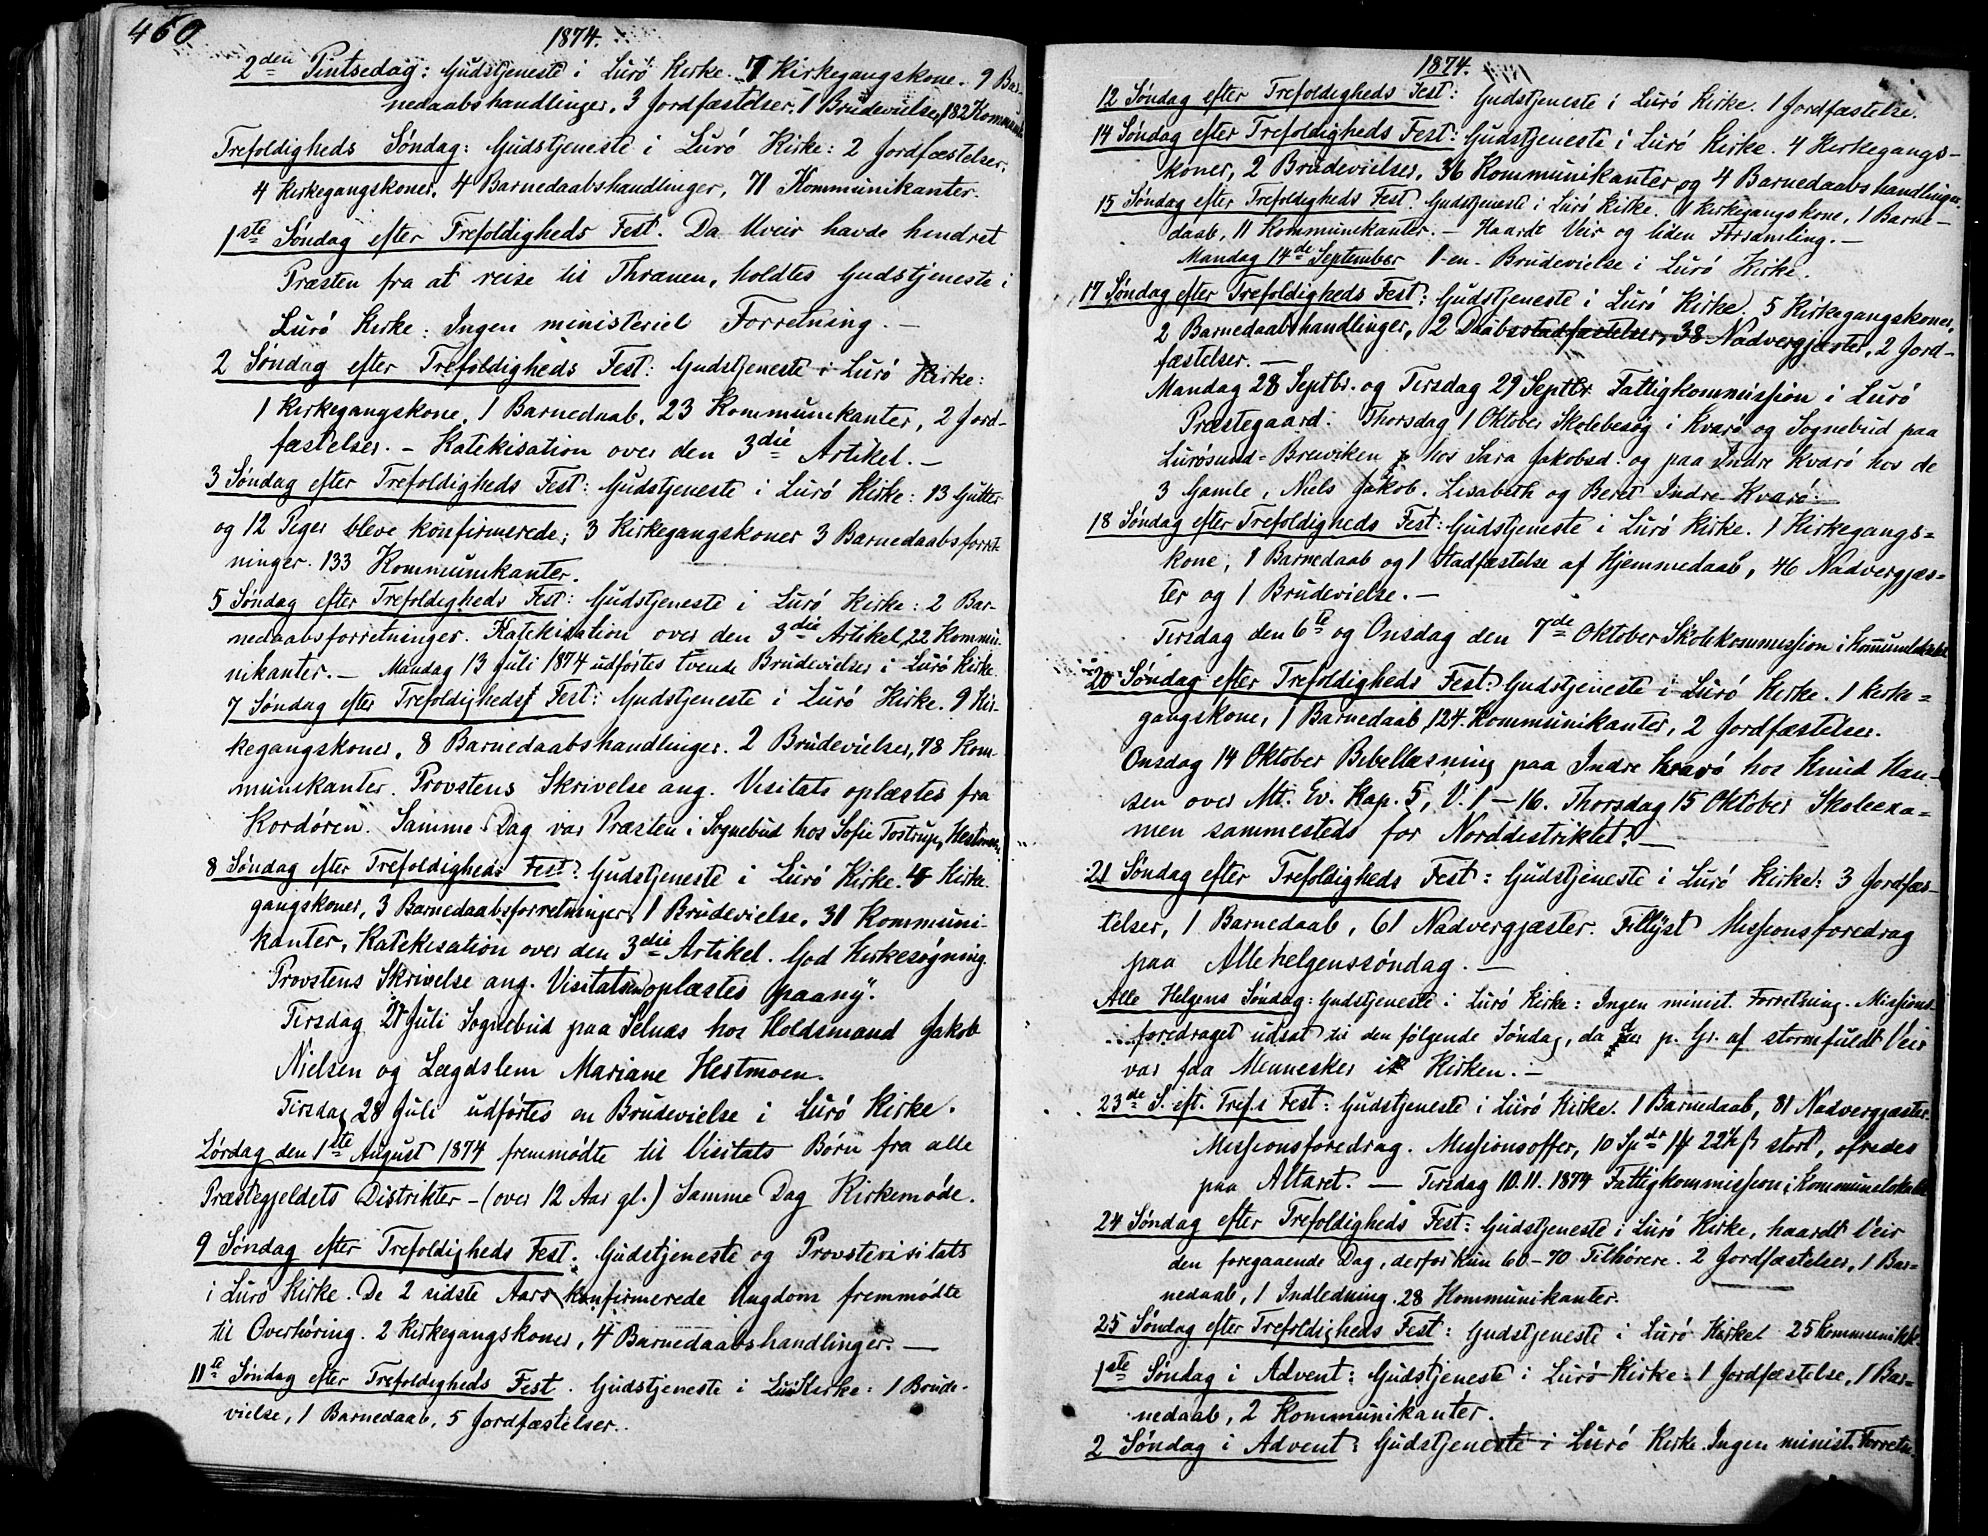 460
1874.
2den Pintsedag: Gudstjeneste i Lurö Kirke. 7 Kirkegangskone. 9 Bar-
nedaabshandlinger, 3 Jordfæstelser, 1 Brudevielse, 182 Kommunik
Trefoldigheds Søndag: Gudstjeneste i Lurö Kirke: 2 Jordfæstelser,
4 Kirkegangskoner, 4 Barnedaabshandlinger, 71 Kommunikanter.
1ste Søndag efter Trefoldigheds Fest. Da Uveir havde hindret
Præsten fra at reise til Thrænen, holdtes Gudstjeneste i
Lurö Kirke: Ingen ministeriel Forretning. —
2 Søndag efter Trefoldigheds Fest: Gudstjeneste i Lurö Kirke:
1 Kirkegangskone, 1 Barnedaab, 23 Kommunikanter, 2 Jord-
fæstelser. — Katekisation over den 3die Artikel. —
3 Søndag efter Trefoldigheds Fest: Gudstjeneste i Lurö Kirke: 13 Gutter
og 12 Piger bleve konfirmerede; 3 Kirkegangskoner 3 Barnedaabsforret-
ninger. 133 Kommunikanter.
5 Søndag efter Trefoldigheds Fest: Gudstjeneste i Lurö Kirke: 2 Bar-
nedaabsforretninger. Katekisation over den 3die Artikel, 22 Kommu-
nikanter. — Mandag 13 Juli 1874 udførtes tvende Brudevielser i Lurö Kirke.
7 Søndag efter Trefoldigheds Fest: Gudstjeneste i Lurö Kirke. 9 Kir-
kegangskoner, 8 Barnedaabshandlinger. 2 Brudevielser, 78 Kom-
munikanter. Provstens Skrivelse ang. Visitats oplæstes fra
Kordøren. Samme Dag var Præsten i Sognebud hos Sofie Tostrup, Hestmon.
8 Søndag efter Trefoldigheds Fest: Gudstjeneste i Lurö Kirke. 4 Kirke-
gangskoner, 3 Barnedaabsforretninger, 1 Brudevielse, 31 Kommuni-
kanter, Katekisation over den 3die Artikel. God Kirkesøgning.
Provstens Skrivelse ang. Visitatsen oplæstes paany.
Tirsdag 21 Juli Sognebud paa Selnæs hos Holdsmand Jakob
Nielsen og Lægdslem Mariane Hestmoen.
Tirsdag 28 Juli udførtes en Brudevielse i Lurö Kirke.
Lørdag den 1ste August 1874 fremmødte til Visitats Børn fra alle
Præstegjeldets Distrikter — (over 12 Aar gl.) Samme Dag Kirkemøde.
9 Søndag efter Trefoldigheds Fest: Gudstjeneste og Provstevisitats
i Lurö Kirke. De 2 sidste Aars konfirmerede Ungdom fremmødte
til Overhøring. 2 Kirkegangskoner, 4 Barnedaabshandlinger. —
11te Søndag efter Trefoldigheds Fest. Gudstjeneste i Lurö Kirke: 1 Brude-
vielse, 1 Barnedaab, 5 Jordfæstelser.
1874.
12 Søndag efter Trefoldigheds Fest: Gudstjeneste i Lurö Kirke. 1 Jordfæstelse.
14 Søndag efter Trefoldigheds Fest: Gudstjeneste i Lurö Kirke. 4 Kirkegangs-
koner, 2 Brudevielser, 36 Kommunikanter, og 4 Barnedaabshandlinger.
15 Søndag efter Trefoldigheds Fest. Gudstjeneste i Lurö Kirke. 1 Kirkegangskone, 1 Barne-
daab, 11 Kommunikanter. — Haardt Veir og liden Forsamling. —
Mandag 14de September 1-en- Brudevielse i Lurö Kirke.
17 Søndag efter Trefoldigheds Fest: Gudstjeneste i Lurö Kirke. 5 Kirkegangskoner,
2 Barnedaabshandlinger, 2 Daabsstadfæstelser, 38 Nadvergjæster, 2 Jord-
fæstelser. —
Mandag 28 Septbr. og Tirsdag 29 Septbr. Fattigkommission i Lurö
Præstegaard. Thorsdag 1 Oktober Skolebesøg i Kvarö og Sognebud paa
Lurösund-Breviken hos Sara Jakobsd. og paa Indre Kvarö hos de
3 Gamle, Niels Jakob. Lisabeth og Beret Indre Kvarö. —
18 Søndag efter Trefoldigheds Fest: Gudstjeneste i Lurö Kirke. 1 Kirkegangs-
kone, 1 Barnedaab og 1 Stadfæstelse af Hjemmedaab, 46 Nadvergjæs-
ter og 1 Brudevielse. —
Tirsdag den 6te og Onsdag den 7de Oktober Skolekommission i Kommunelokalet
20 Søndag efter Trefoldigheds Fest: Gudstjeneste i Lurö Kirke. 1 Kirke-
gangskone, 1 Barnedaab, 124. Kommunikanter, 2 Jordfæstelser.
Onsdag 14 Oktober Bibellæsning paa Indre Kvarö hos Knud Han-
sen over Mt. Ev. Kap. 5, V. 1 — 16. Thorsdag 15 Oktober Skoleexa-
men sammesteds for Norddistriktet. —
21 Søndag efter Trefoldigheds Fest: Gudstjeneste i Lurö Kirke: 3 Jordfæs-
telser, 1 Barnedaab, 61 Nadvergjæster. Tillyst Missionsforedrag
paa Allehelgenssøndag. —
Alle Helgens Søndag: Gudstjeneste i Lurö Kirke: Ingen minist. Forretning. Missions-
foredraget udsat til den følgende Søndag, da der p. Gr. af stormfuldt Veir
var faa Mennesker i Kirken. —
23de S. eft. Tref.s Fest: Gudstjeneste i Lurö Kirke. 1 Barnedaab, 81 Nadvergjæster.
Missionsforedrag. Missionsoffer, 10 Spdr 1 22½ ß stort, ofredes
paa Altaret. — Tirsdag 10.11.1874 Fattigkommission i Kommunelokalet
24 Søndag efter Trefoldigheds Fest: Gudstjeneste i Lurö Kirke, haardt Veir
den foregaaende Dag, derfor kun 60-70 Tilhørere. 2 Jordfæstelser, 1 Bar-
nedaab, 1 Indledning. 28 Kommunikanter.
25 Søndag efter Trefoldigheds Fest: Gudstjeneste i Lurö Kirke 25 Kommunikt.
1ste Søndag i Advent: Gudstjeneste i Lurö Kirke: 1 Jordfæstelse, 1 Bar-
nedaab, 2 Kommunikanter.
2 Søndag i Advent: Gudstjeneste i Lurö Kirke. Ingen minist. Forretn.